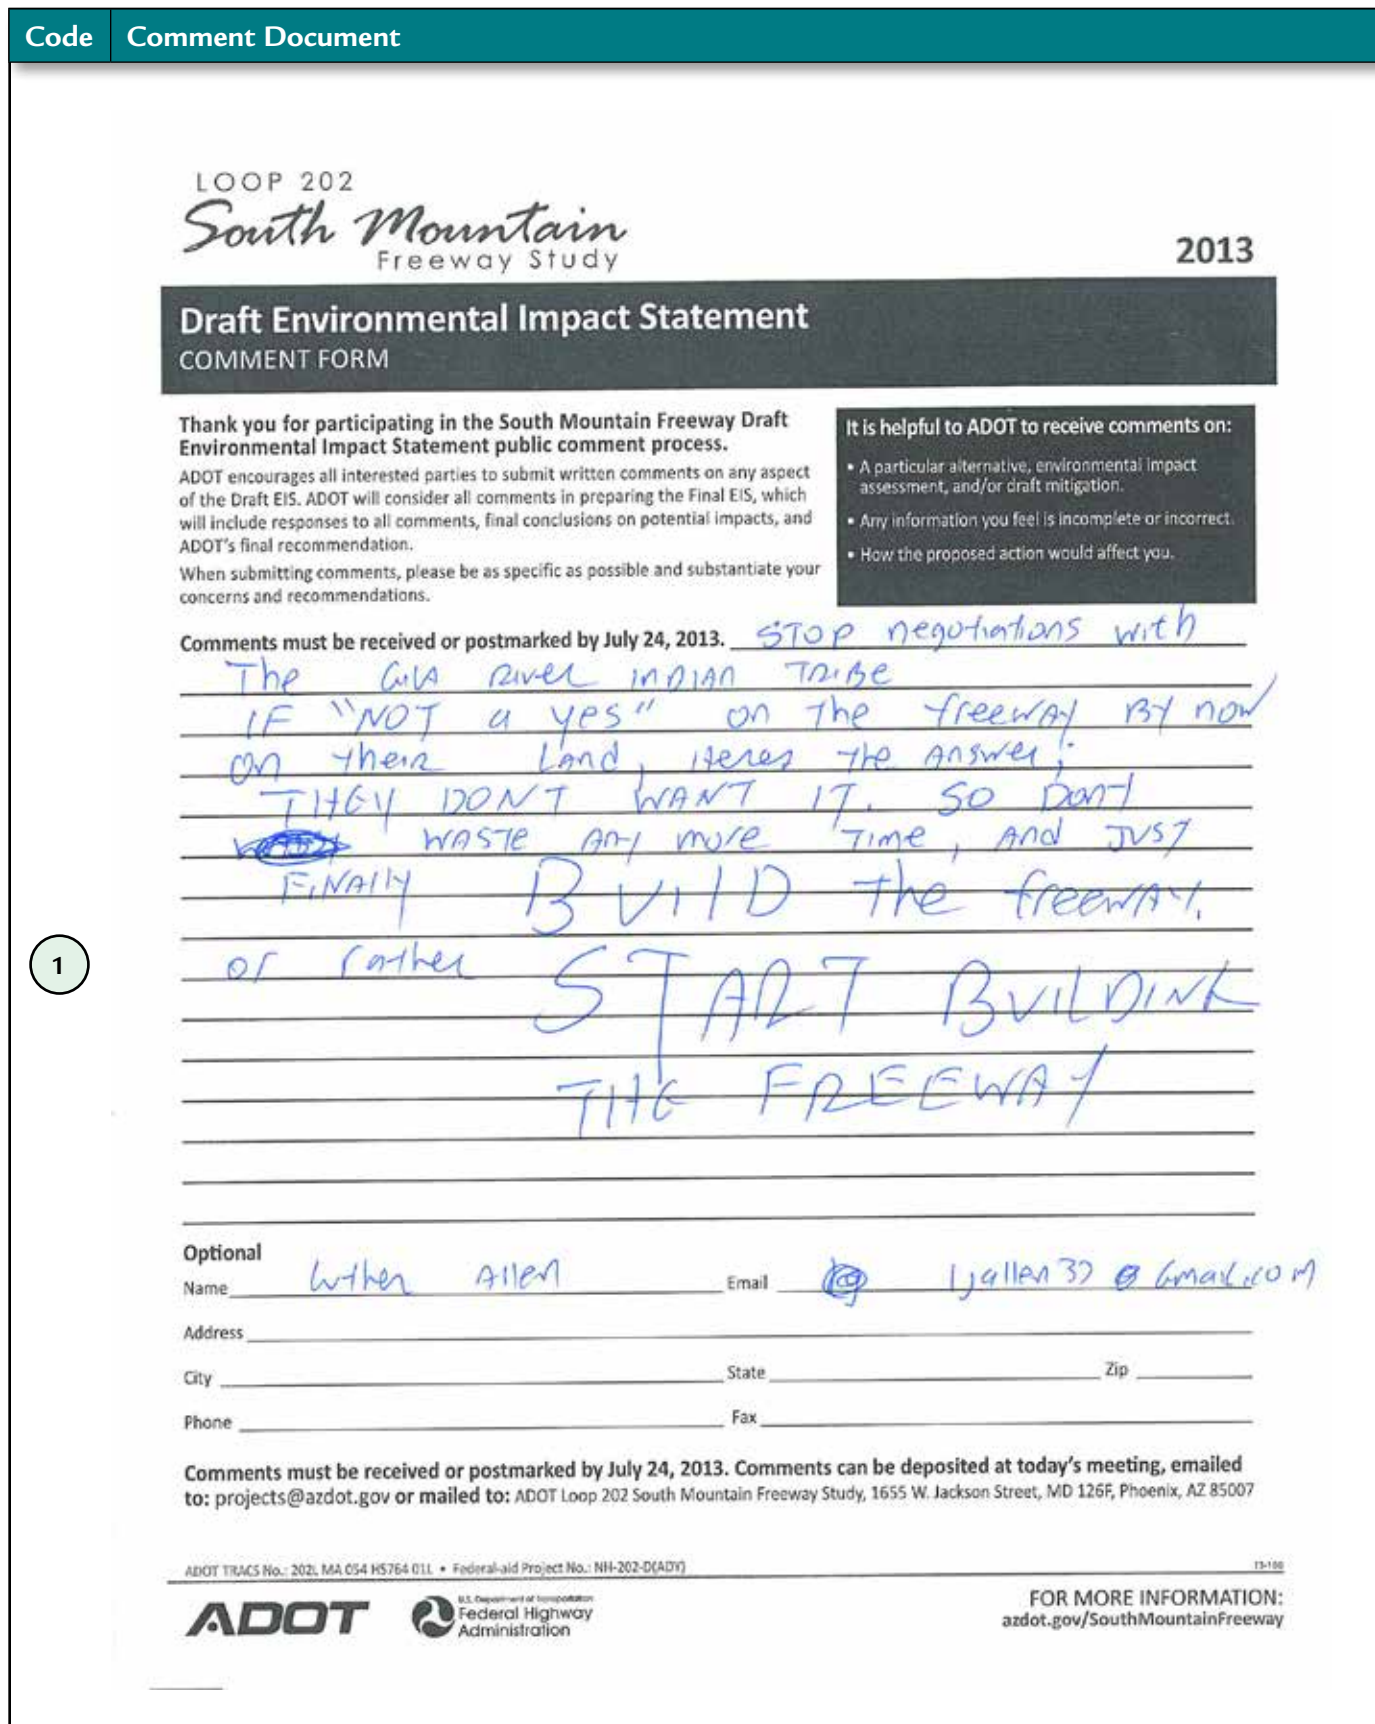 Code Comment Document
LOOP 202
South Mountain
Freeway Study
2013
Draft Environmental Impact Statement
COMMENT FORM
Thank you for participating in the South Mountain Freeway Draft
Environmental Impact Statement public comment process.
ADOT encourages all interested parties to submit written comments on any aspect
of the Draft EIS. ADOT will consider all comments in preparing the Final EIS, which
will include responses to all comments, final conclusions on potential impacts, and
ADOT's final recommendation.
When submitting comments, please be as specific as possible and substantiate your
concerns and recommendations.
It is helpful to ADOT to receive comments on:
• A particular alternative, environmental impact
assessment, and/or draft mitigation.
• Any information you feel is incomplete or incorrect.
• How the proposed action would affect you.
Comments must be received or postmarked by July 24, 2013. STOP negotiations with
The GilA River INDIAN TRIBE
IF "NOT a yes" on The freewAy By now
on their Land, Heres the Answer;
THEY DONT WANT IT. SO Dont
WASTE Any more Time, And JUST
FiNAlly BUIlD the freewAy.
1
or rather START BUILDING
THE FREEWAY
Optional
Name Luther Allen Email ljallen37@Gmail.com
Address
City State Zip
Phone Fax
Comments must be received or postmarked by July 24, 2013. Comments can be deposited at today's meeting, emailed
to: projects@azdot.gov or mailed to: ADOT Loop 202 South Mountain Freeway Study, 1655 W. Jackson Street, MD 126F, Phoenix, AZ 85007
ADOT TRACS No.: 202L MA 054 H5764 01L • Federal-aid Project No.: NH-202-D(ADY)
13-100
ADOT
U.S. Department of Transportation
Federal Highway
Administration
FOR MORE INFORMATION:
azdot.gov/SouthMountainFreeway